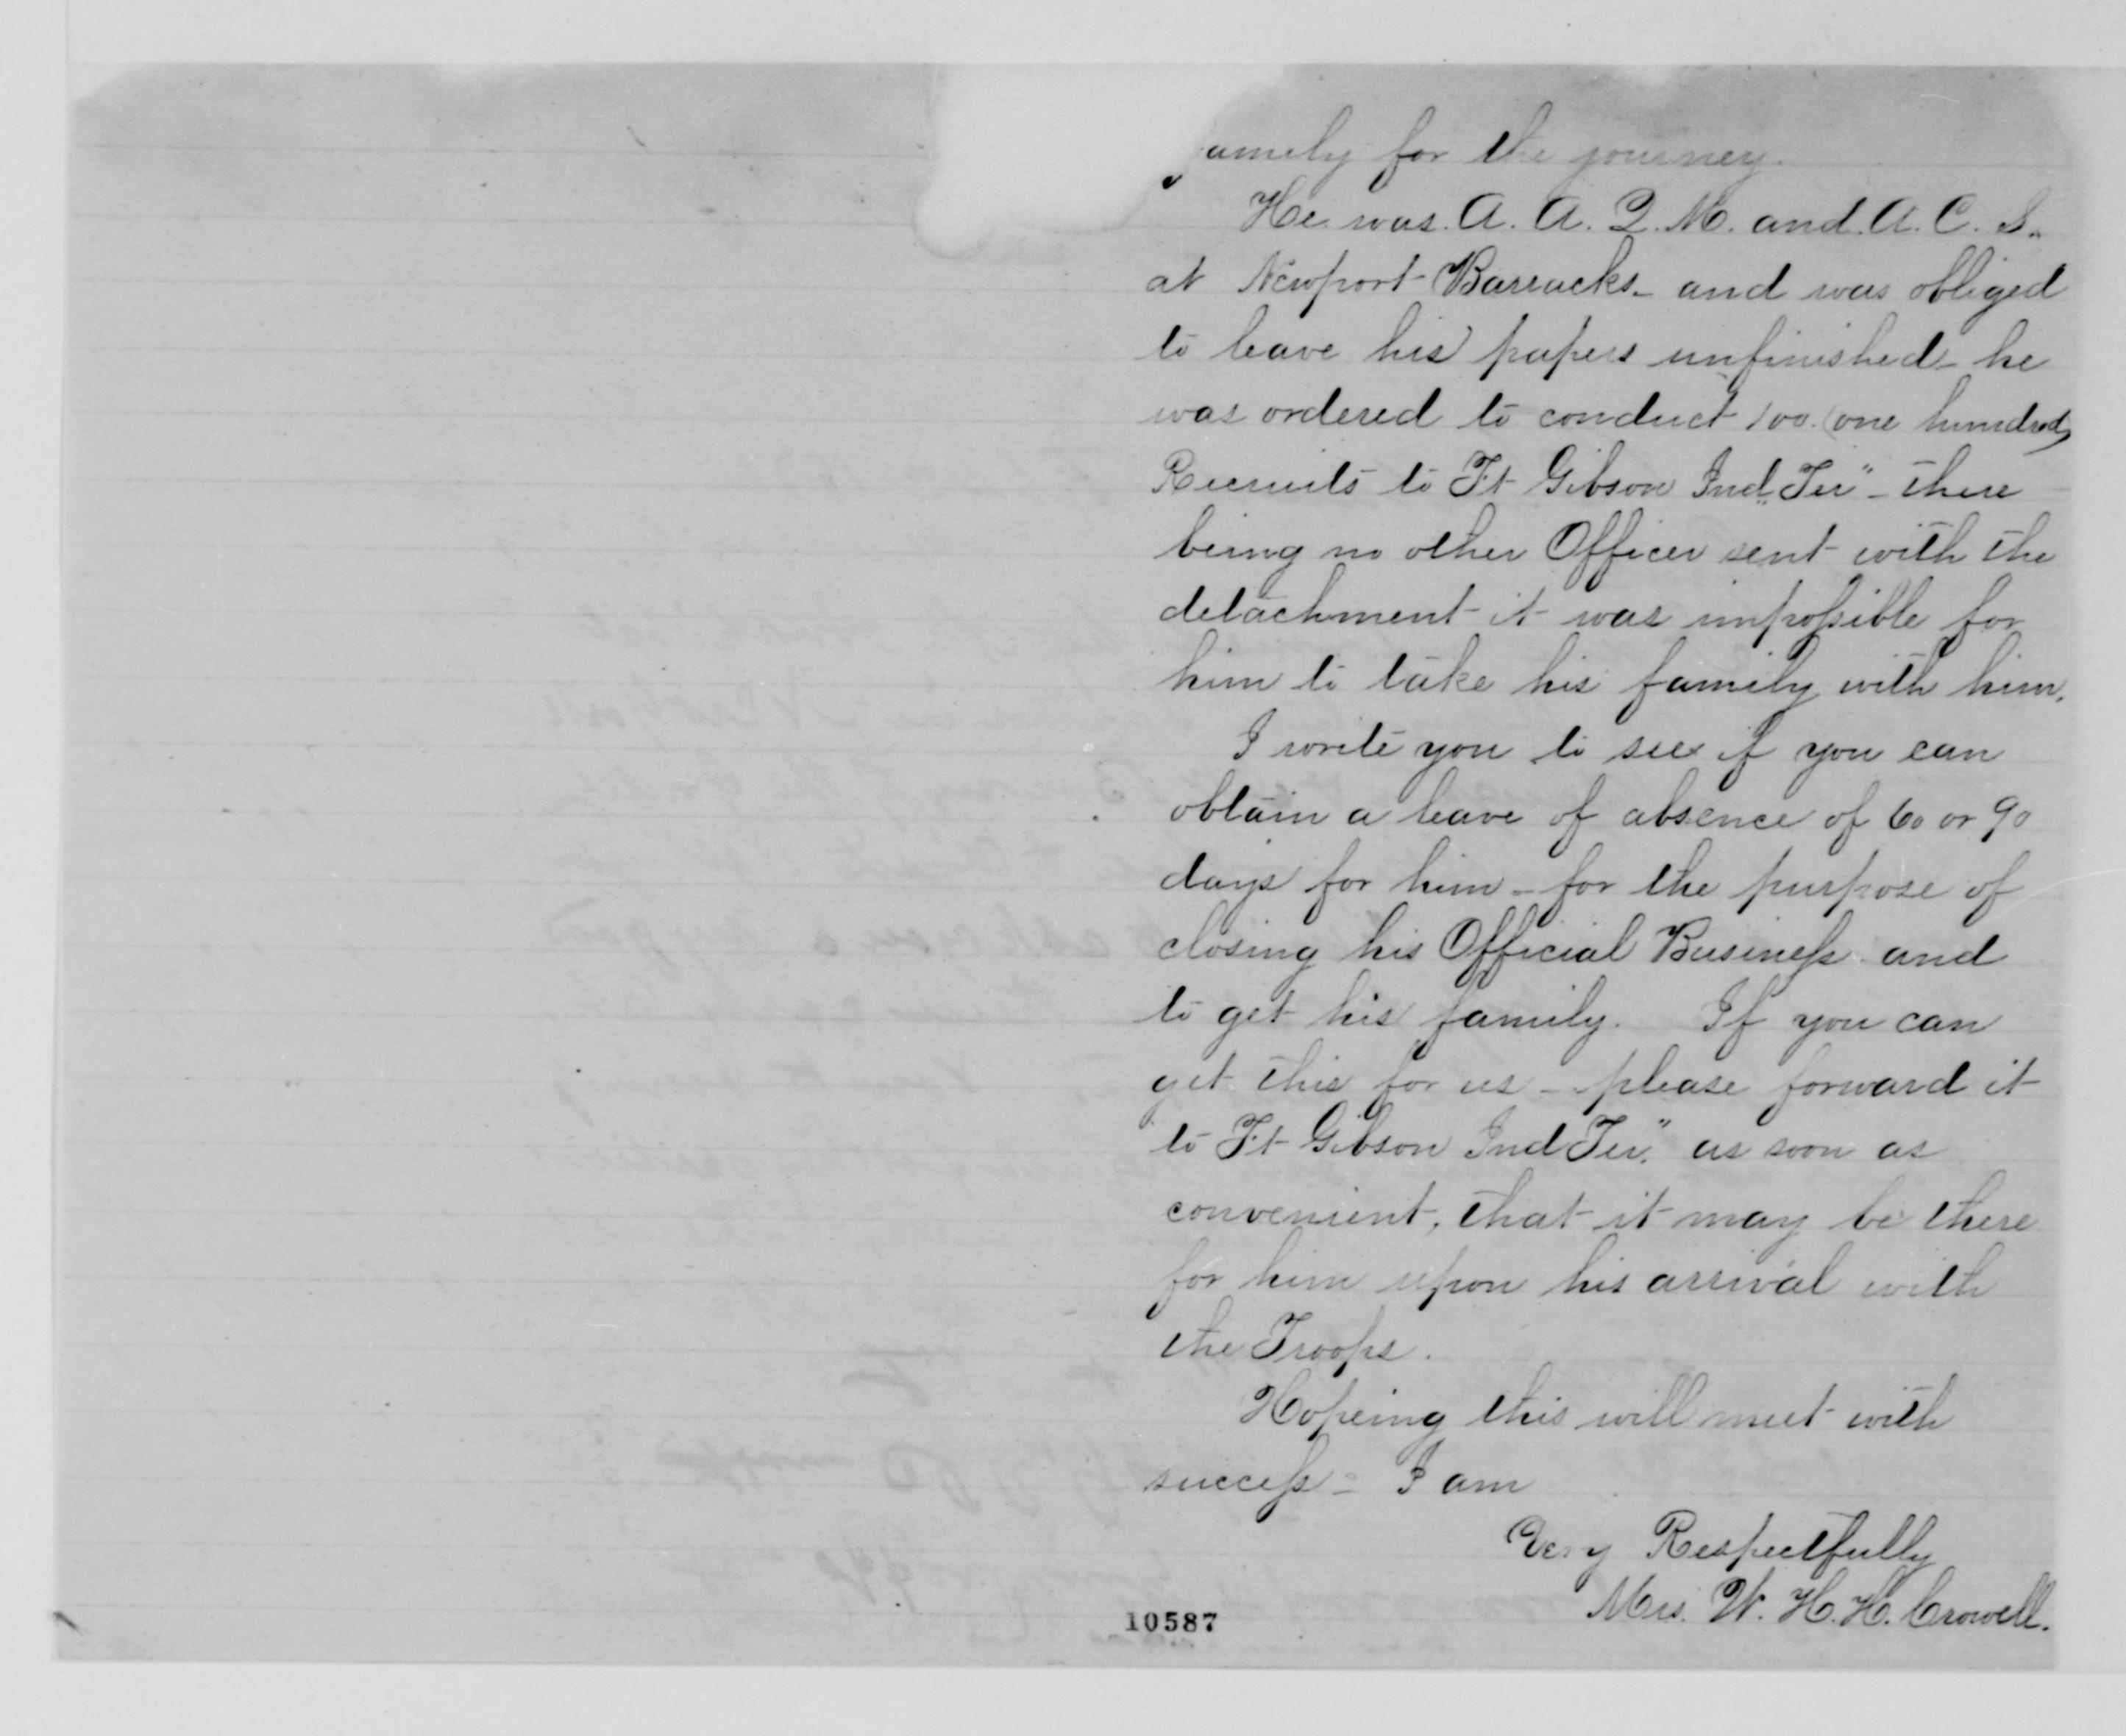 family for the journey.
He was A. A. Q. M. and A. C. S.
at Newport Barracks - and was obliged
to leave his papers unfinished - he
was ordered to conduct 100. (one hundred)
Recruits to Ft Gibson Ind. Ter" - there
being no other Officer sent with the
detachment it was impossible for
him to take his family with him.
I write you to see if you can
obtain a leave of absence of 60 or 90
days for him - for the purpose of
closing his Official Business and
to get his family. If you can
get this for us - please forward it
to Ft Gibson Ind Ter." as soon as
convenient, that it may be there
for him upon his arrival with
the Troops.
Hopeing this will meet with
success - I am
Very Respectfully
Mrs. W. H. H. Crowell.
10587